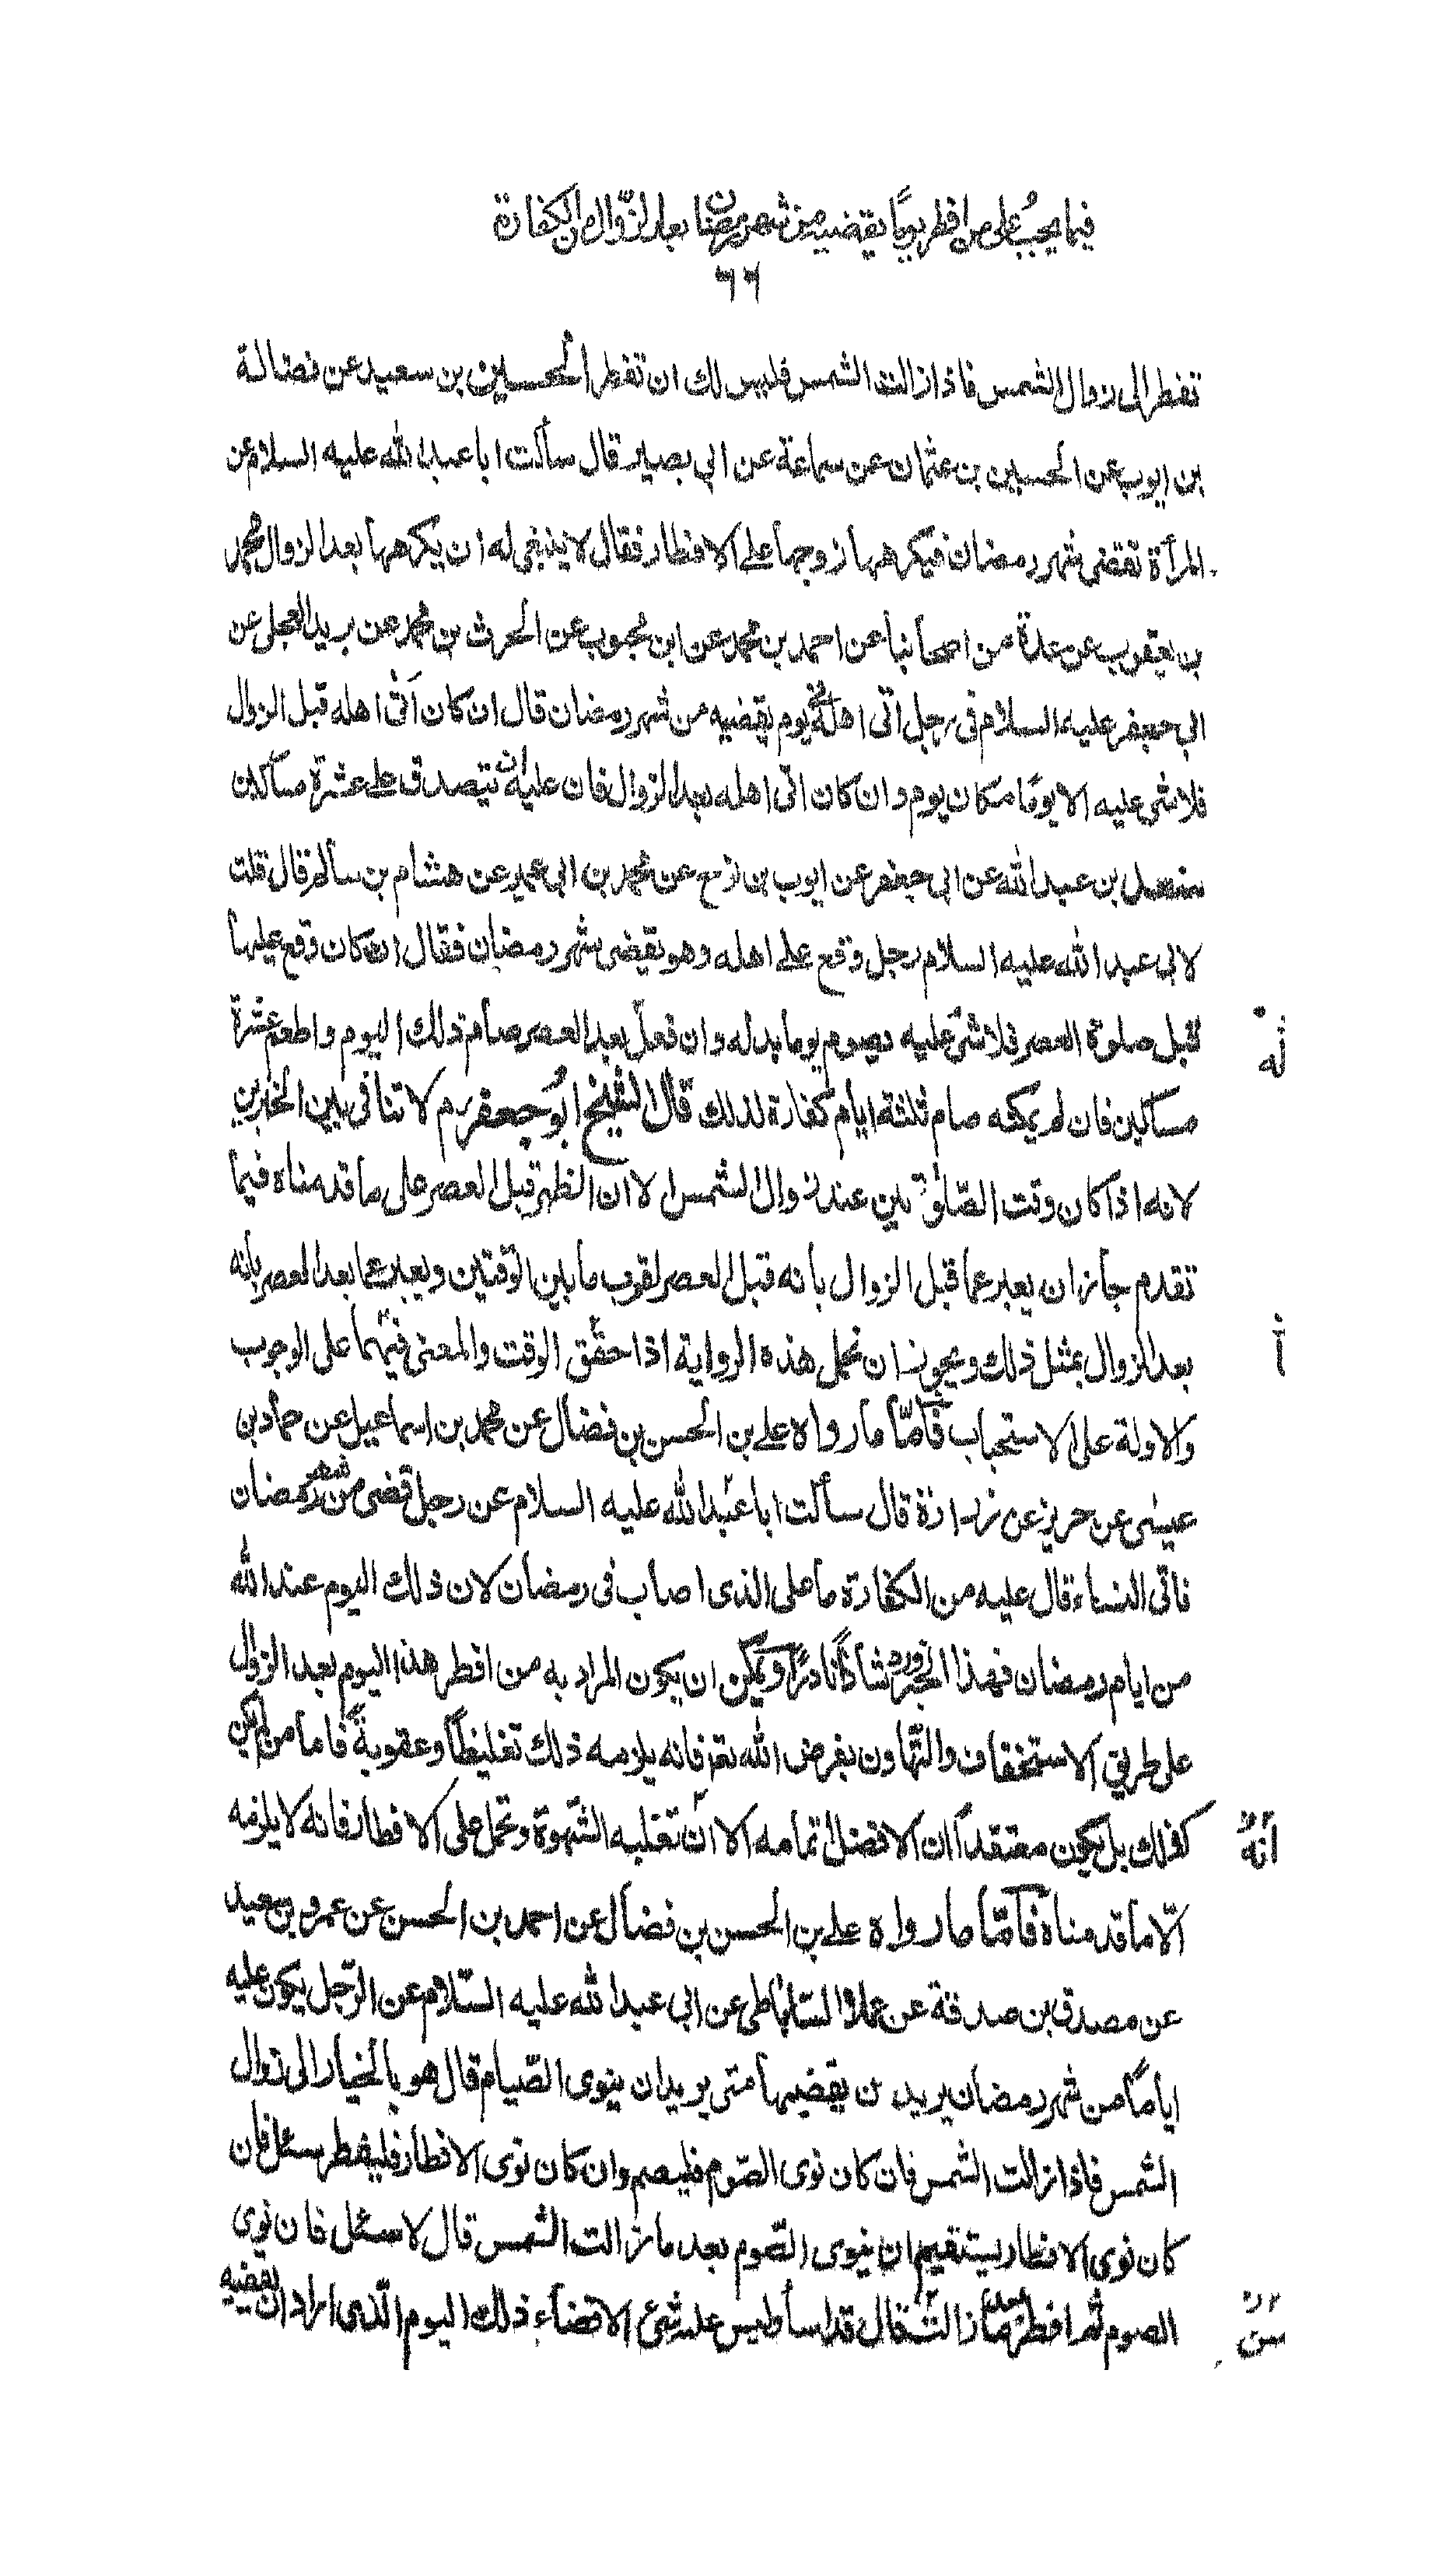 فيما يجب على من افطر يومًا يقضيه من شهر رمضان بعد الزوال من الكفارة
٦٦
تفطر الى زوال الشمس فاذا زالت الشمس فليس لك ان تفطر الحسين بن سعيد عن فضالة
بن ايوب عن الحسين بن عثمان عن سماعة عن ابي بصير قال سألت ابا عبد الله عليه السلام عن
المرأة تقضى شهر رمضان فيكرهها زوجها على الافطار فقال لا ينبغي له ان يكرهها بعد الزوال محمد
بن يعقوب عن عدة من اصحابنا عن احمد بن محمد عن ابن محبوب عن الحرث بن محمد عن بريد العجلى عن
ابي جعفر عليه السلام فى رجل اتى اهله في يوم يقضيه من شهر رمضان قال ان كان اتى اهله قبل الزوال
فلا شى عليه الا يومًا مكان يوم وان كان اتى اهله بعد الزوال فان عليه ان يتصدق على عشرة مساكين
سعد بن عبد الله عن ابى جعفر عن ايوب بن نوح عن محمد بن ابى عمير عن هشام بن سالم قال قلت
لابى عبد الله عليه السلام رجل وقع على اهله وهو يقضى شهر رمضان فقال ان كان وقع عليها
قبل صلوة العصر فلا شئ عليه يصوم يوما بدله وان فعل بعد العصر صام ذلك اليوم واطعم عشرة
مساكين فان لم يمكنه صام ثلثة ايام كفارة لذلك قال الشيخ ابو جعفر ره لا تنافى بين الخبرين
لانه اذا كان وقت الصلوتين عند زوال الشمس الا ان الظهر قبل العصر على ما قدمناه فيما
تقدم جاز ان يعبر عما قبل الزوال بانه قبل العصر لقرب ما بين الوقتين ويعبر عما بعد العصر بانه
بعد الزوال بمثل ذلك ويجوز ان نحمل هذه الرواية اذا حقق الوقت والمعنى فيهما على الوجوب
والاولة على الاستحباب فأمّا ما رواه على بن الحسن بن فضال عن محمد بن اسماعيل عن حماد بن
عيسى عن حريز عن زرارة قال سألت ابا عبد الله عليه السلام عن رجل قضى من شهر رمضان
فاتى النساء قال عليه من الكفارة ما على الذى اصاب فى رمضان لان ذلك اليوم عند الله
من ايام رمضان فهذا الخبر ورد شاذًا نادرًا ويمكن ان يكون المراد به من افطر هذا اليوم بعد الزوال
على طريق الاستخفاف والتهاون بفرض الله تع فانه يلزمه ذلك تغليظًا وعقوبةً فاما من لم يكن
كذلك بل يكون معتقدًا ان الافضل اتمامه الا ان تغلبه الشّهوة وتحمل على الافطار فانه لا يلزمه
الّا ما قدمناه فأمّا ما رواه على بن الحسن بن فضال عن احمد بن الحسن عن عمرو بن سعيد
عن مصدق بن صدقة عن عمار الساباطى عن ابى عبد الله عليه السّلام عن الرّجل يكون عليه
ايامًا من شهر رمضان يريد ان يقضيها متى يريد ان ينوى الصّيام قال هو بالخيار الى زوال
الشمس فاذا زالت الشمس فان كان نوى الصّوم فليصم وان كان نوى الافطار فليفطر سئل فان
كان نوى الافطار يستقيم ان ينوى الصّوم بعد ما زالت الشمس قال لا سئل فان نوى
الصوم ثم افطر بعد ما زالت قال قد اساء وليس عليه شئ الا قضاء ذلك اليوم الّذى اراد ان يقضيه
له
أ
أنه